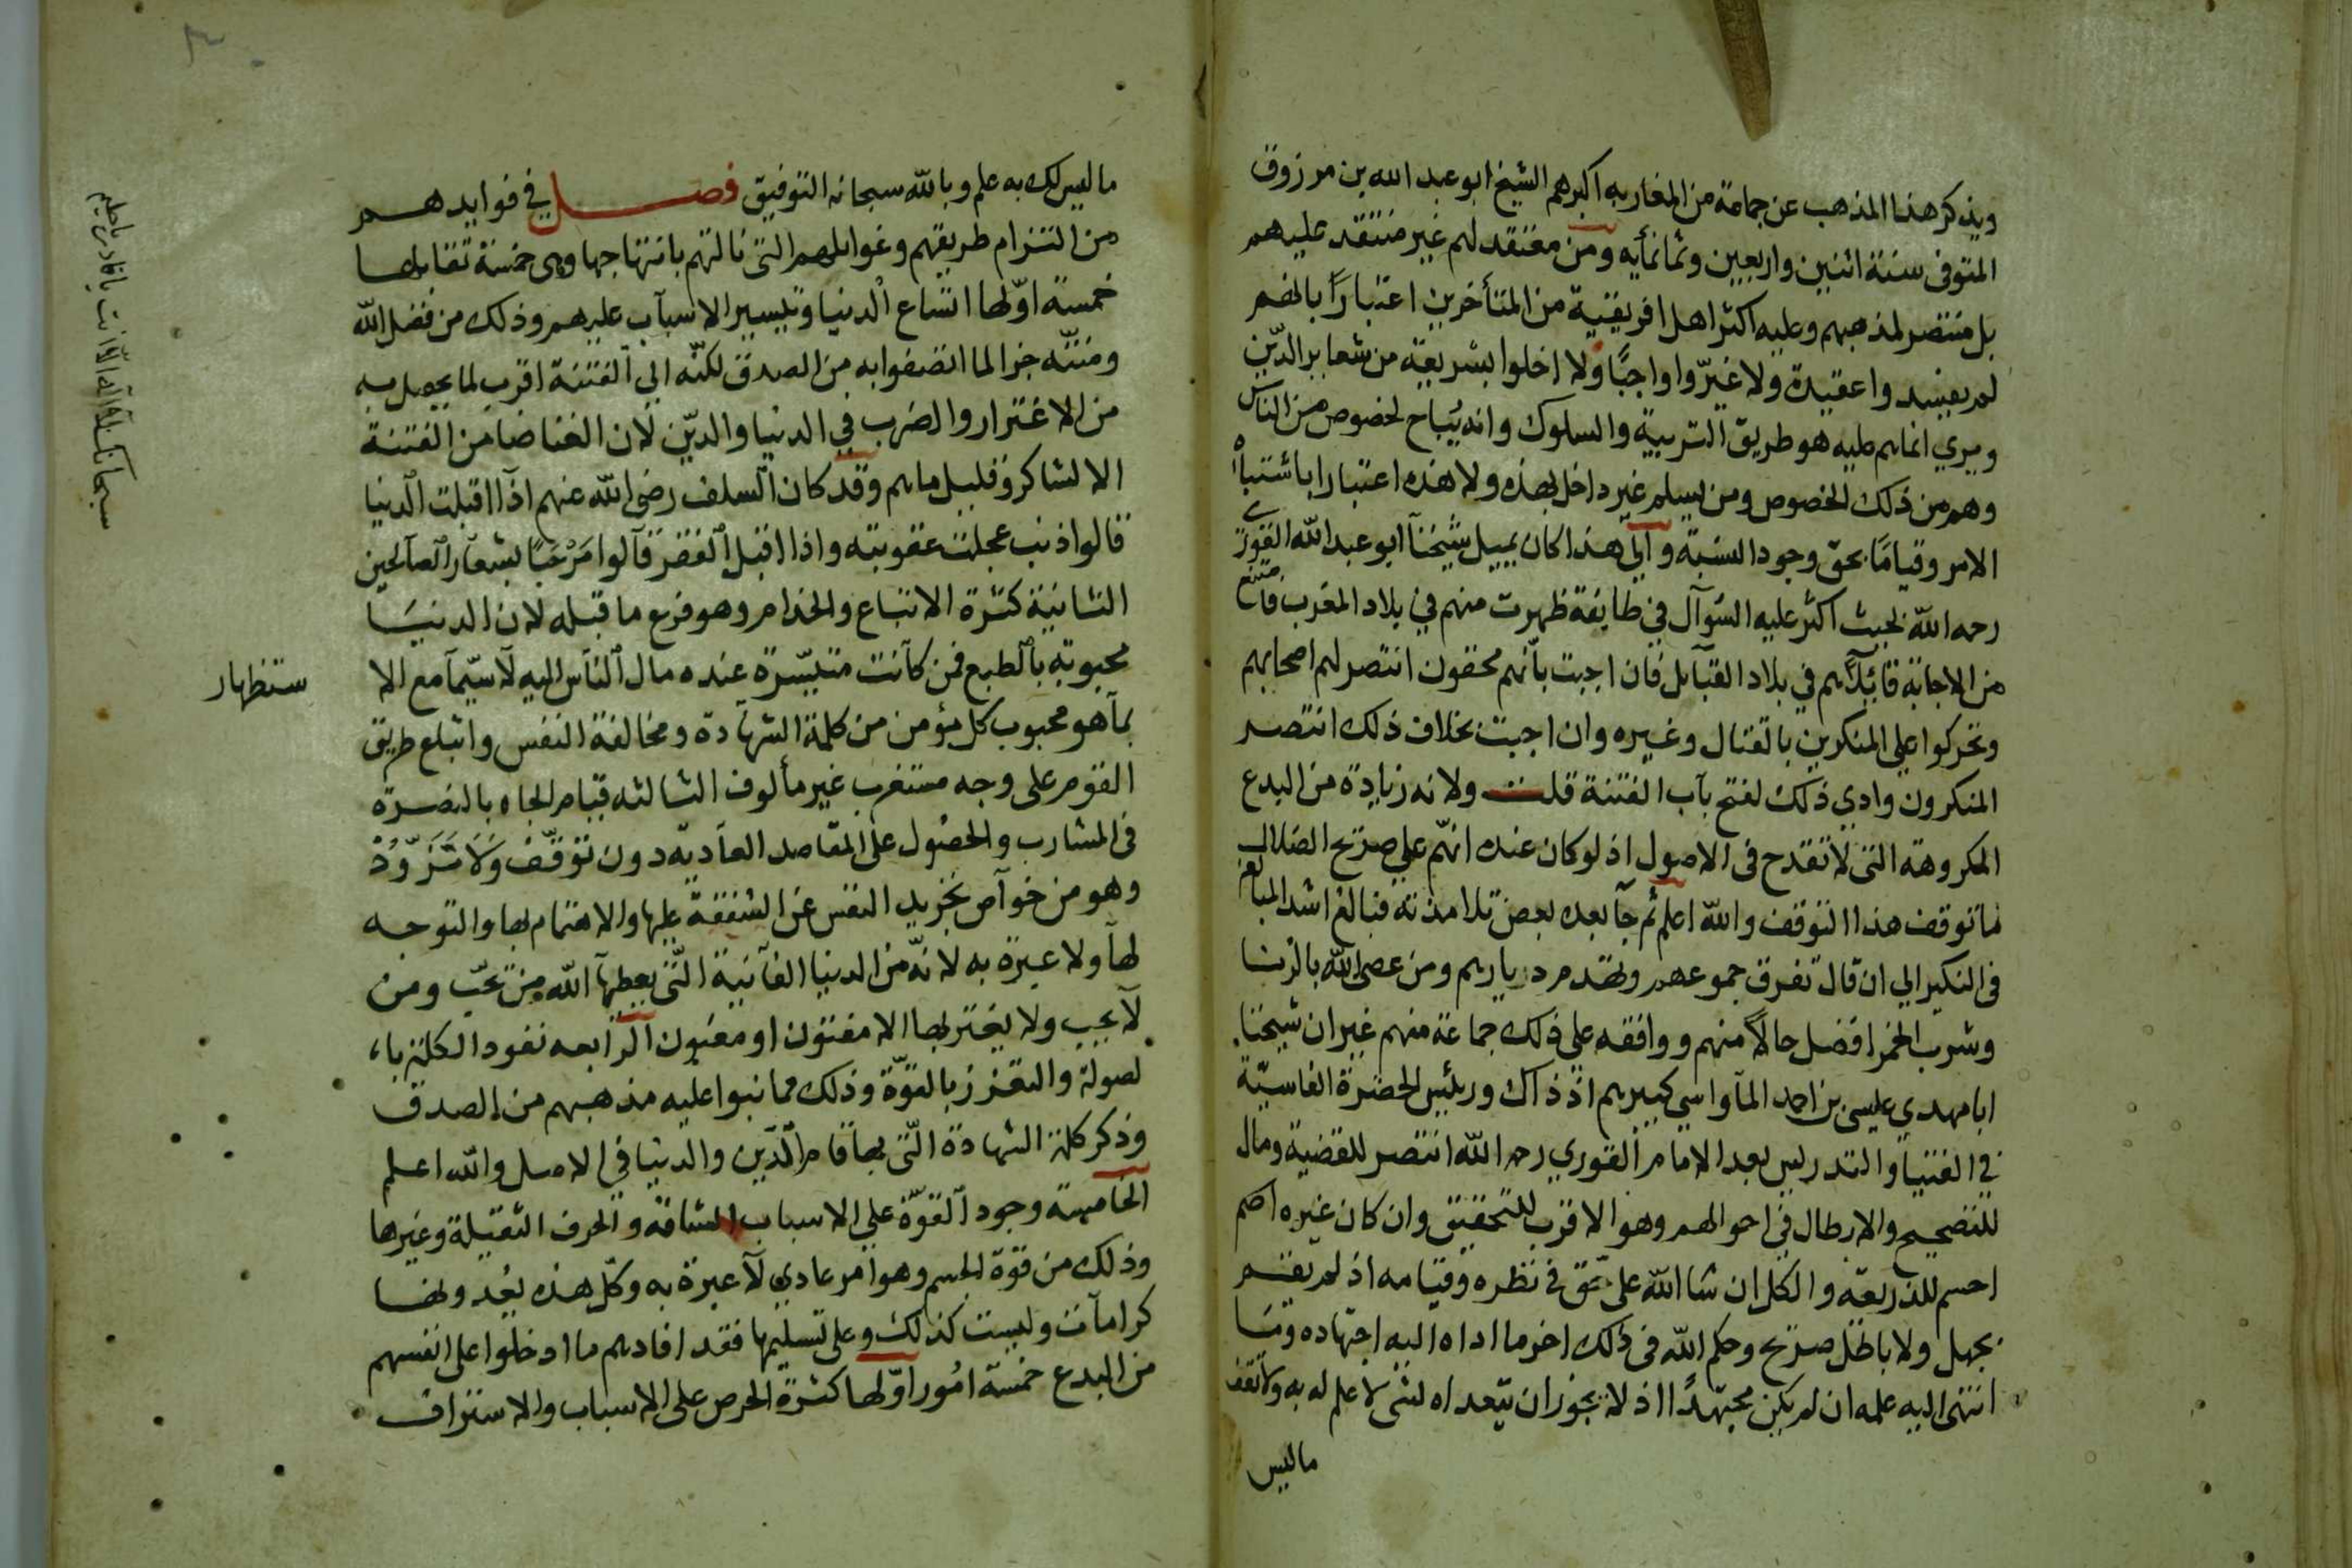 ويذكر هذا المذهب عن جماعة من المغاربه اكبرهم الشيخ ابو عبد الله بن مرزوق
المتوفى سنة اثنين واربعين وثمانمأيه ومن معتقد لهم غير منتقد عليهم
بل منتصر لمذهبهم وعليه اكثر اهل افريقية من المتأخرين اعتبارًا بالضم
لم يفسدوا عقيدة ولا غيّروا واجبًا ولا اخلوا بشريعة من شعاير الدّين
ويري انما هم عليه هو طريق التربية والسلوك وانه يُباح لخصوص من الناس
وهم من ذلك الخصوص ومن يسلم غير داخل بهذه ولا هذه اعتبارا باشتباه
الامر وقيامًا بحق وجود السنة والي هذا كان يميل شيخنا ابو عبد الله القوري
رحمه الله بحيث اكثر عليه السّوآل في طايفة ظهرت منهم في بلاد المغرب فامتنع
من الاجابة قائلاً هم في بلاد القبآيل فان اجبت بأنهم محقون انتصر لهم اصحابهم
وتحركوا على المنكرين بالقتال وغيره وان اجبت بخلاف ذلك انتصر
المنكرون وادي ذلك لفتح بآب الفتنة قلت ولانه زيادة من البدع
المكروهة التى لا تقدح فى الاصول اذ لو كان عنده انهّم علي صريح الضلال
ما توقف هذا التوقف والله اعلم ثم جآ بعده بعض تلامذته فبالغ اشد المبالغه
فى النكير الي ان قال تفرق جموعهم وتهدم ديارهم ومن عصى الله بالزنا
وشرب الخمر افضل حالاً منهم ووافقه علي ذلك جماعة منهم غير ان شيخنا
ابا مهدي عيسى بن احمد المآواسي كبيرهم اذ ذاك ورئيس الحضرة الفاسيّة
في الفتيا والتدريس بعد الامام القوري رحمه الله انتصر للقضية ومال
للتصحيح والابطال في احوالهم وهو الاقرب للتحقيق وان كان غيره
احسم للذريعة والكل ان شا الله على حق في نظره وقيامه اذ لم يقم
بجهل ولا باطل صريح وحكم الله فى ذلك اخر ما اداه اليه اجتهاده وما
انتهى اليه علمه ان لم يكن مجتهدًا اذ لا يجوز ان يتعداه لشئ لا علم له به ولا تقف
ماليس
ماليس لك به علم وبالله سبحانه التوفيق فصل في فوايدهم
من التزام طريقهم وغوايلهم التى نالتهم بانتهاجها وهى خمسة تقابلها
خمسة اوّلها اتساع الدنيا وتيسير الاسبآب عليهم وذلك من فضل الله
ومنّته جزا لما اتصفوا به من الصدق لكنّه الي الفتنة اقرب لما يحصل به
من الاغترار والضرب في الدنيا والديّن لان الغنا ضامن الفتنة
الا لشاكر وقليل ماهم وقد كان السلف رضى الله عنهم اذآ اقبلت الدنيا
قالوا ذنب عجلت عقوبته واذا اقبل الفقر قآلوا مَرْحَبًا بشعآر الصآلحين
الثانية كثرة الاتباع والخدام وهو فرع ما قبله لان الدنيا
محبوبة بالطبع فمن كآنت متيسّرة عنده مال النآس اليه لآسيّمآ مع الا
ستظهار
بمآ هو محبوب كل مؤمن من كلمة الشهآدة ومخالفة النفس واتباع طريق
القوم على وجه مستغرب غير مألوف الثالثه قيام الجاه بالنصرة
فى المشارب والحصُول على المقاصد العآدية دون توقّف وَلاَ تَرَدُّدْ
وهو من خوآص تجريد النفس عن الشفقة عليها والاهتمام بها والتوجه
لهآ ولا عبرة به لانّه من الدنيا الفآنية الّتى يعطيهآ الله من يحبّ ومن
لآ يحب ولا يغتر بها الا مفتون او مغبُون الرّابعه نفود الكلمة با
لصولة والتعزز بالقوّة وذلك مما نبوا عليه مذهبهم من الصدق
وذكر كلمة الشهادة الّتى بها قام الدّين والدنيا في الاصل والله اعلم
الخامسة وجود القوّة علي الاسباب الشاقه والحرف الثقيلة وغيرها
وذلك من قوة الجسم وهو امر عادي لآ عبرة به وكلّ هذه يعُدونها
كرامآت وليست كذلك وعلى تسليمها فقد افادهم ما ادخلوا على انفسهم
من البدع خمسة امُور اوّلها كثرة الحرص على الاسباب والاستزاف